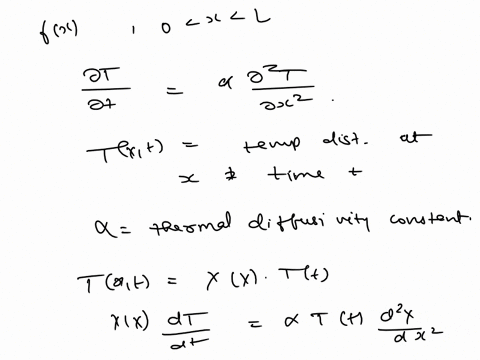 f(x) , 0 < x < L
∂T/∂t = α ∂²T/∂x² .
T(x,t) = temp dist. at
x & time t
α = thermal diffusivity constant.
T(x,t) = X(x) . T(t)
X(x) dT/dt = α T(t) d²X/dx²